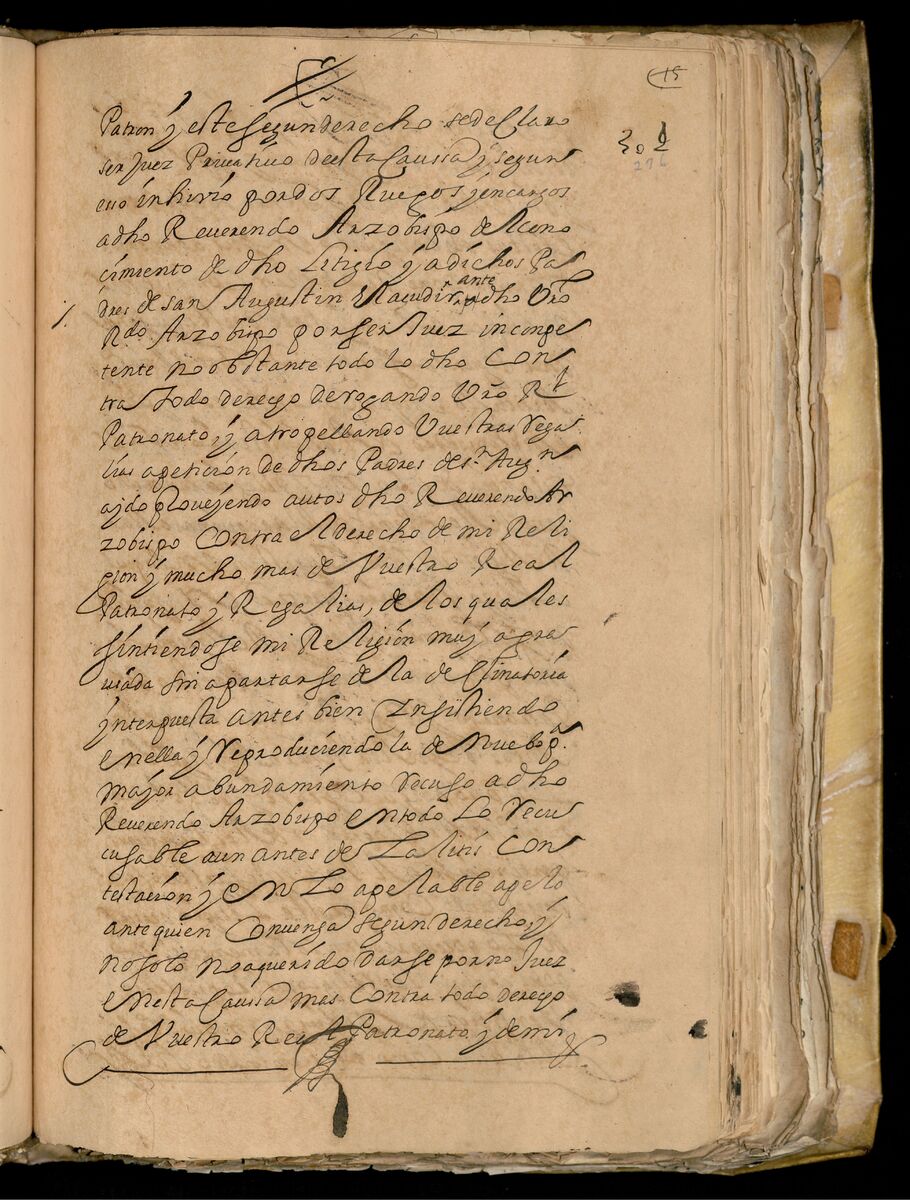 15
301
276
Patron y este segun derecho se declaro
ser Juez Privativo de esta Caussa y segun
eso inhivio por dos Ruegos y encargos
a dho Reverendo Arzobispo de el cono
cimiento de dho Litigio y a dichos Pa
dres de san Augustin el acudir ante dho Vro
Rdo Arzobispo por ser Juez incompe
tente no obstante todo lo dho Con
tra todo derego derogando Vro Rl
Patronato, y atropellando Vuestras rega
lias a peticion de dhos Padres de sn Augn
a ydo proveyendo autos dho Reverendo Ar
zobispo Contra el derecho de mi Reli
gion y mucho mas de Vuestro Real
Patronato y Regalias, de los quales
sintiendose mi Religion muy agra
viada sin apartarse de la declinatoria
ynterpuesta antes bien Insistiendo
en ella y reproduciendola de nuebo pa
mayor abundamiento recuso a dho
Reverendo Arzobispo en todo Lo recu
cusable aun antes de La litis Con
testacion y en Lo apelable apelo
ante quien Convenga segun derecho, y
no solo no a querido darse por no Juez
en esta Caussa mas Contra todo derego
de Vuestro Real Patronato y de mi